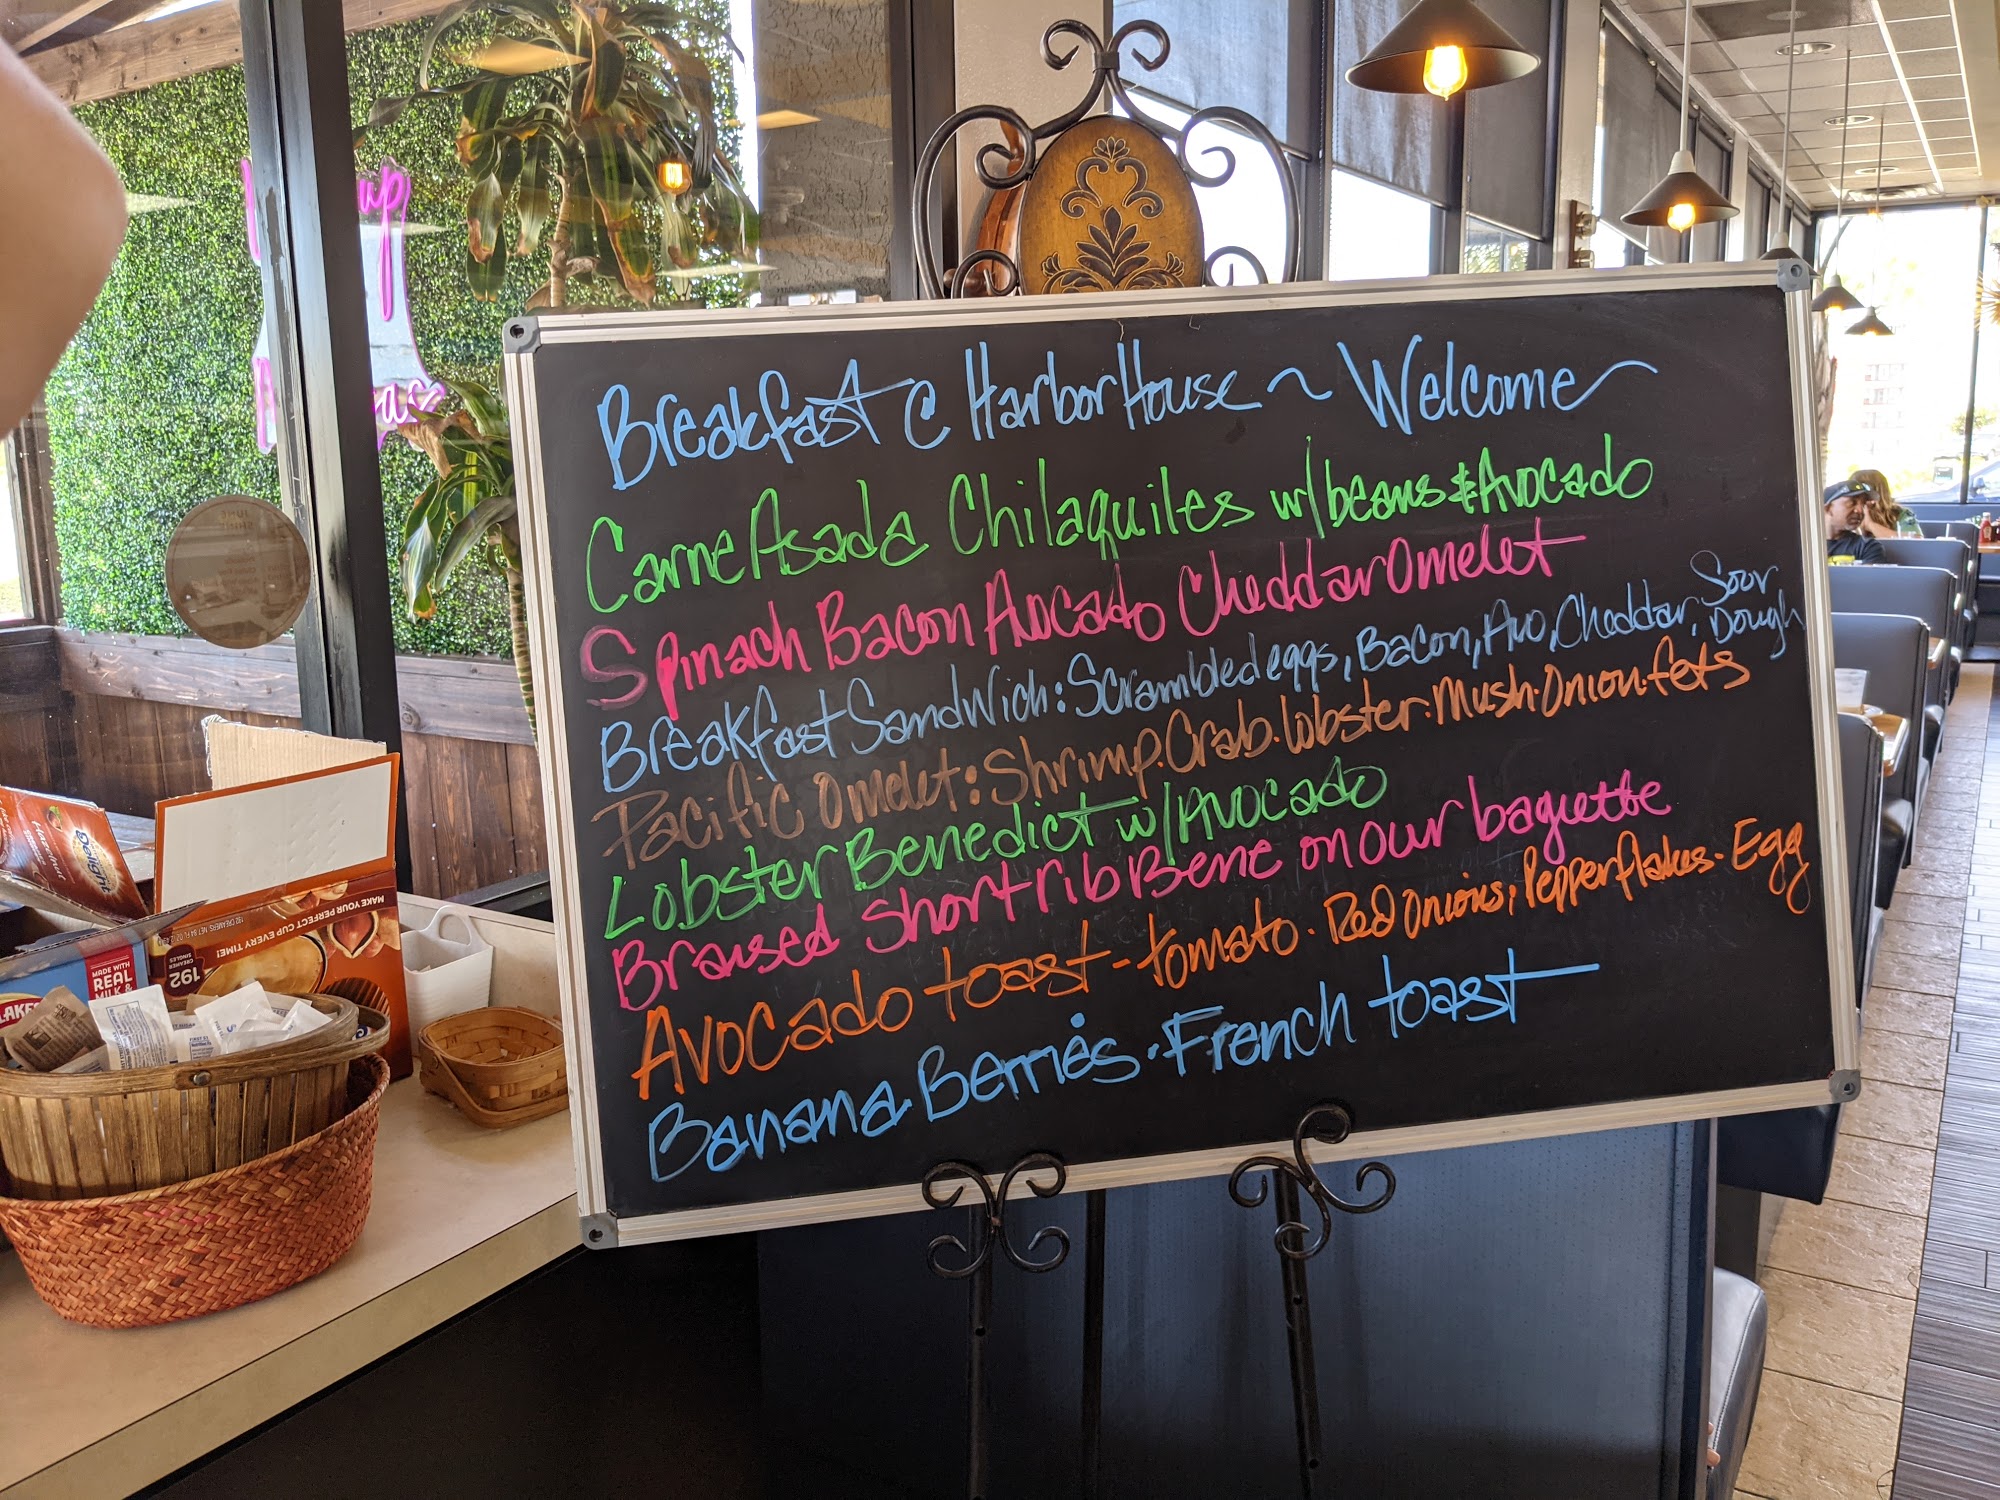 Breakfast @ Harbor House ~ Welcome
Carne Asada Chilaquiles w/beans & Avocado
Spinach Bacon Avocado Cheddar Omelet
Breakfast Sandwich: Scrambled eggs, Bacon, Avo, Cheddar, Sour Dough
Pacific Omelet: Shrimp. Crab. lobster. Mush. Onion. feta
Lobster Benedict w/Avocado
Braised Short rib Bene on our baguette
Avocado toast - tomato. Red Onions, Pepper flakes. Egg
Banana Berries. French toast
up
JUNE
Hazelnut
Delight
MAKE YOUR PERFECT CUP EVERY TIME!
192
CREAMER SINGLES
MADE WITH
REAL
MILK &